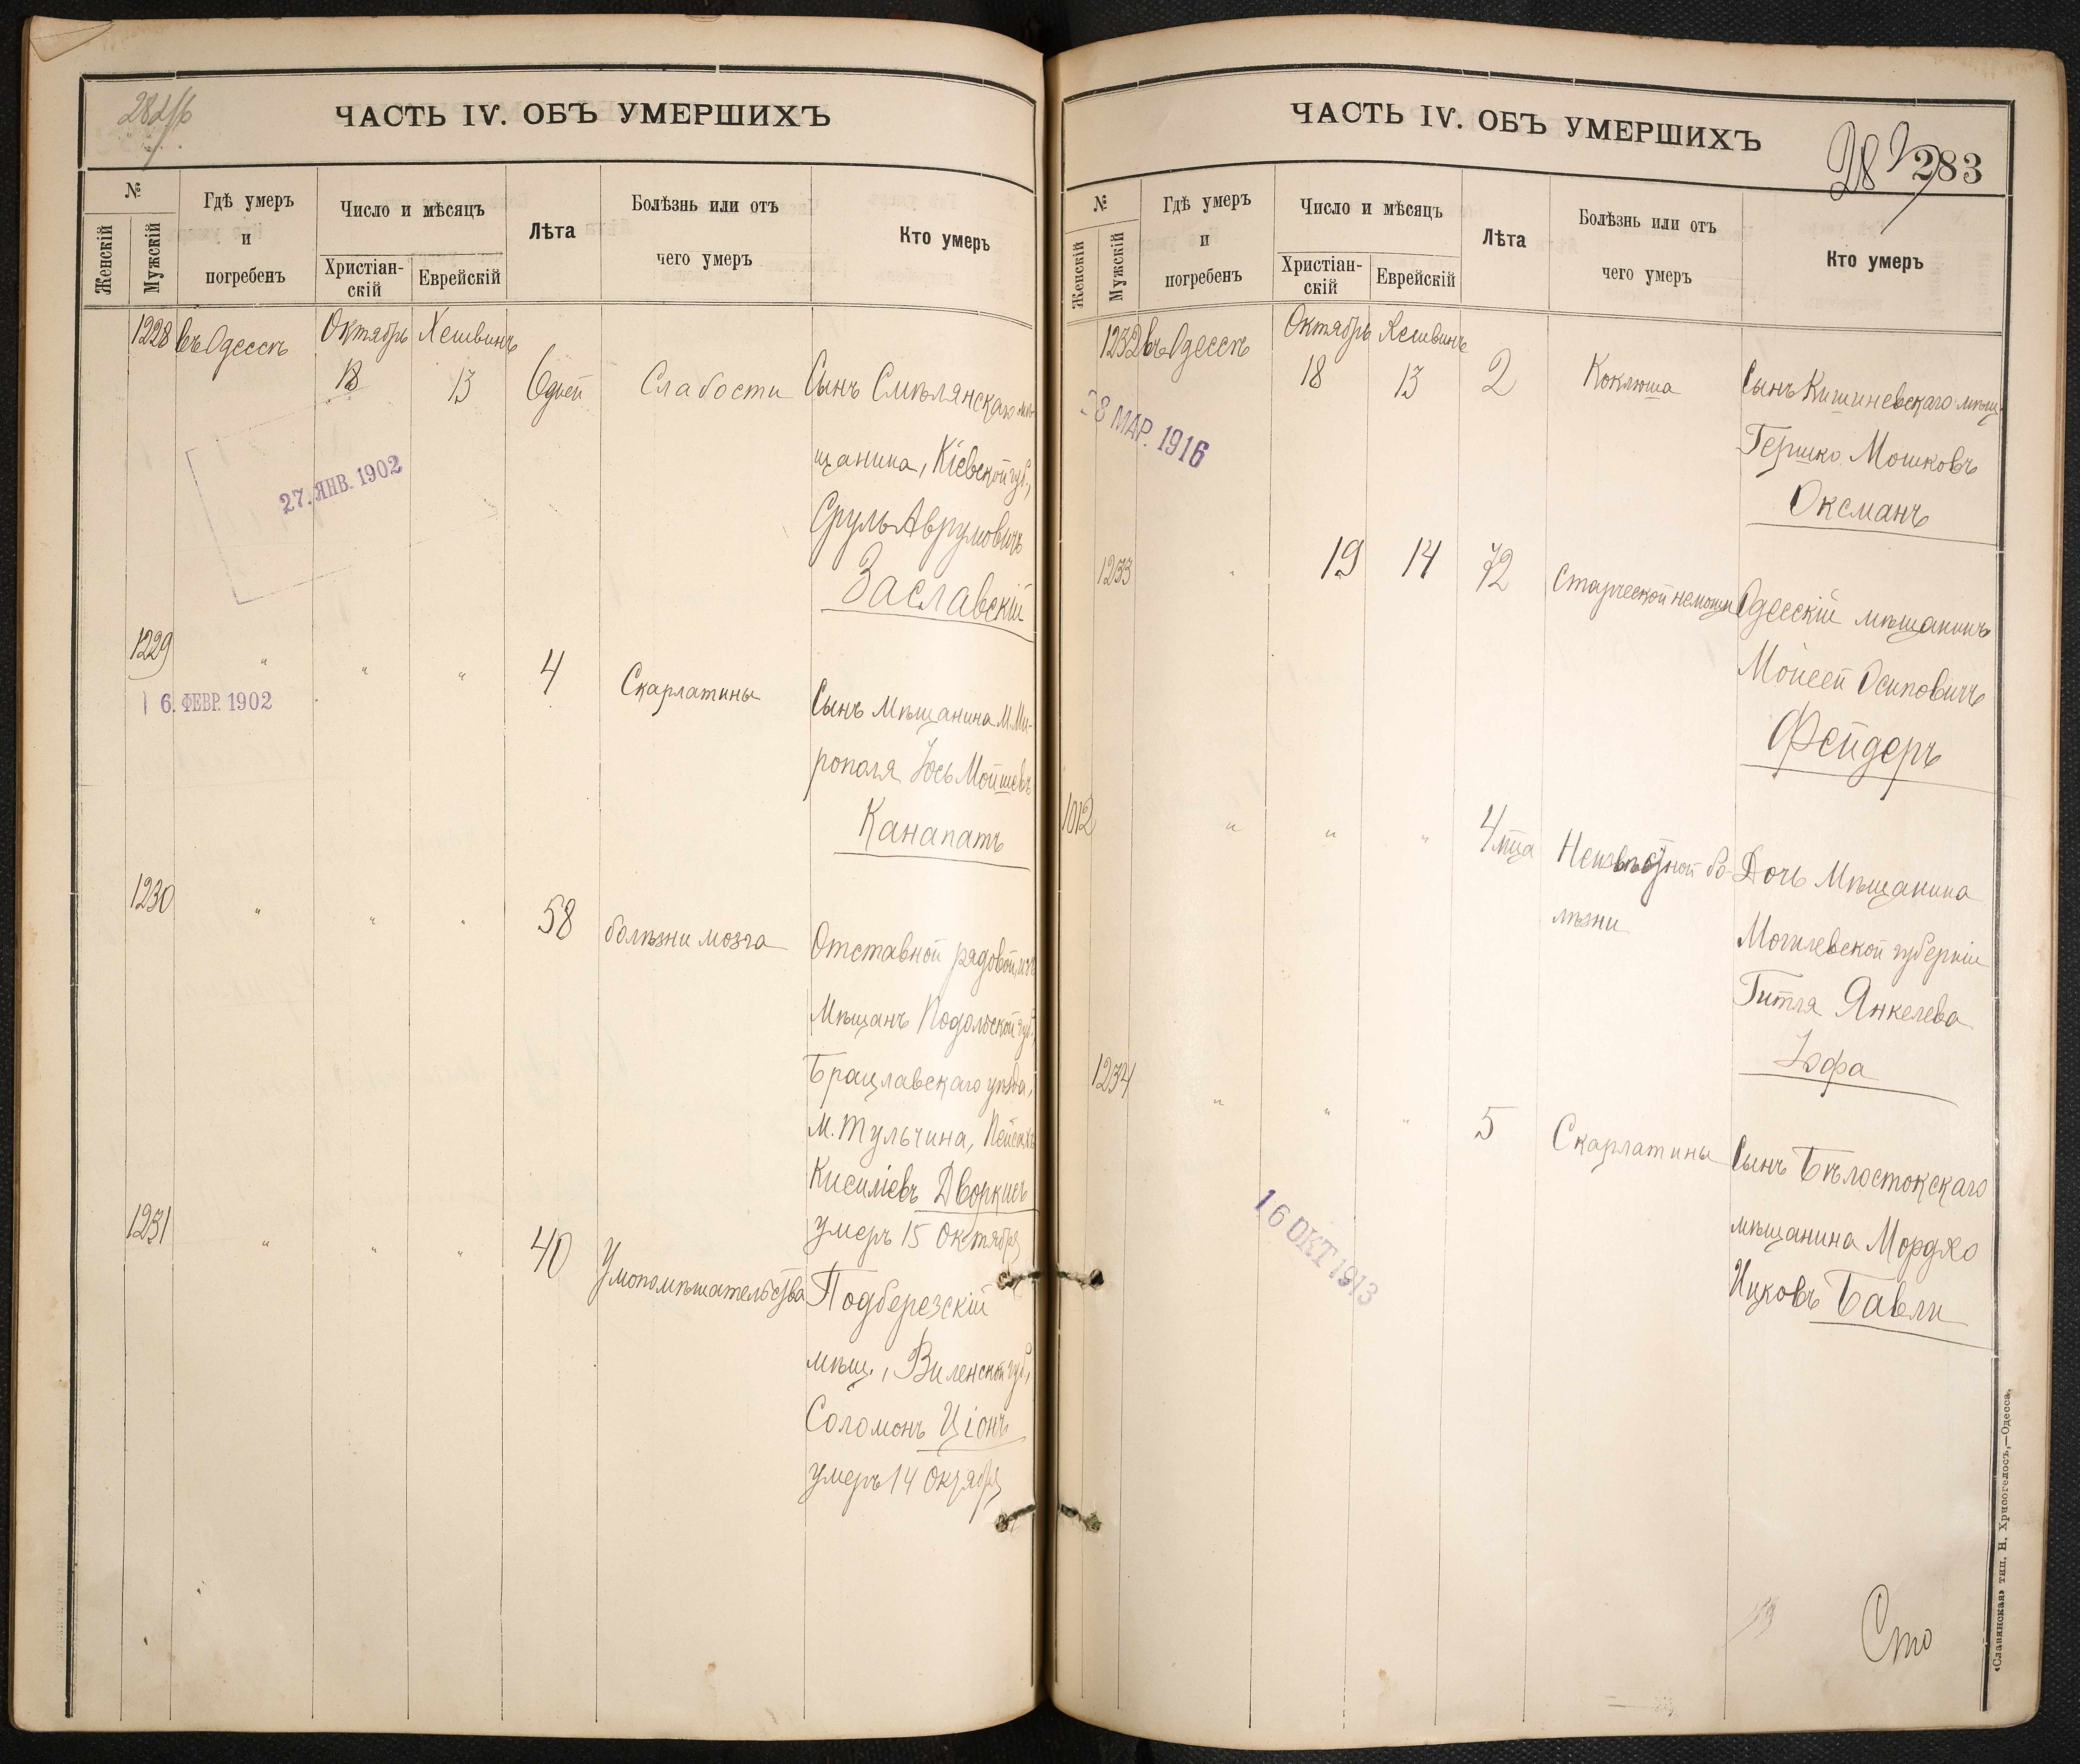 ЧАСТЬ IV. ОБЪ УМЕРШИХЪ
№
Женскій
Мужскій
Гдѣ умеръ
и
погребенъ
Число и мѣсяцъ
Христіан-
скій
Еврейскій
Лѣта
Болѣзнь или отъ
чего умеръ
Кто умеръ
1228 въ Одессѣ Октябрь Хешвинъ
18 13 6 дней Слабости Сынъ Смѣлянскаго мѣ-
щанина, Кіевской губ.,
Сруль Аврумовичъ
Заславскій
27. ЯНВ. 1902
1229 " " " 4 Скарлатины
16. ФЕВР. 1902
Сынъ Мѣщанина М. Ми-
рополя Іось Мойшевъ
Канапатъ
1230 " " " 58 болѣзни мозга
Отставной рядовой, изъ
Мѣщанъ Подольской губ.,
Брацлавскаго уѣзда,
М. Тульчина, Пейсахъ
Кисиліевъ Дворкисъ
умеръ 15 Октября
1231 " " " 40 Умопомѣшательства
Подберезскій
мѣщ., Виленской губ.,
Соломонъ Ціонъ
умеръ 14 Октября
ЧАСТЬ IV. ОБЪ УМЕРШИХЪ
283
№
Женскій
Мужскій
Гдѣ умеръ
и
погребенъ
Число и мѣсяцъ
Христіан-
скій
Еврейскій
Лѣта
Болѣзнь или отъ
чего умеръ
Кто умеръ
1232 въ Одессѣ Октябрь Хешвинъ
18 13 2 Коклюша Сынъ Кишиневскаго мѣщ.
Гершко Мошковъ
Оксманъ
28 МАР. 1916
1233 " 19 14 72 Старческой немощи Одесскій мѣщанинъ
Мойсей Осиповичъ
Фейдеръ
1012 " " " 4 м̃ца Неизвѣстной бо-
лѣзни
Дочь Мѣщанина
Могилевской губерніи
Гитля Янкелева
Іофа
1234 " " " 5 Скарлатины
Сынъ Бѣлостокскаго
мѣщанина Мордко
Ицковъ Бавли
16 ОКТ 1913
Сто
«Славянская» тип. Н. Хрисогелосъ,—Одесса.